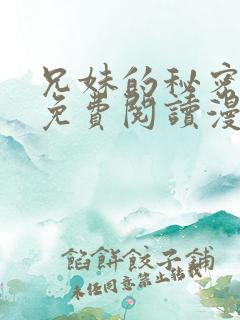 兄妹的秘密
免費閱讀漫
餡餅餃子鋪
未经同意禁止转载